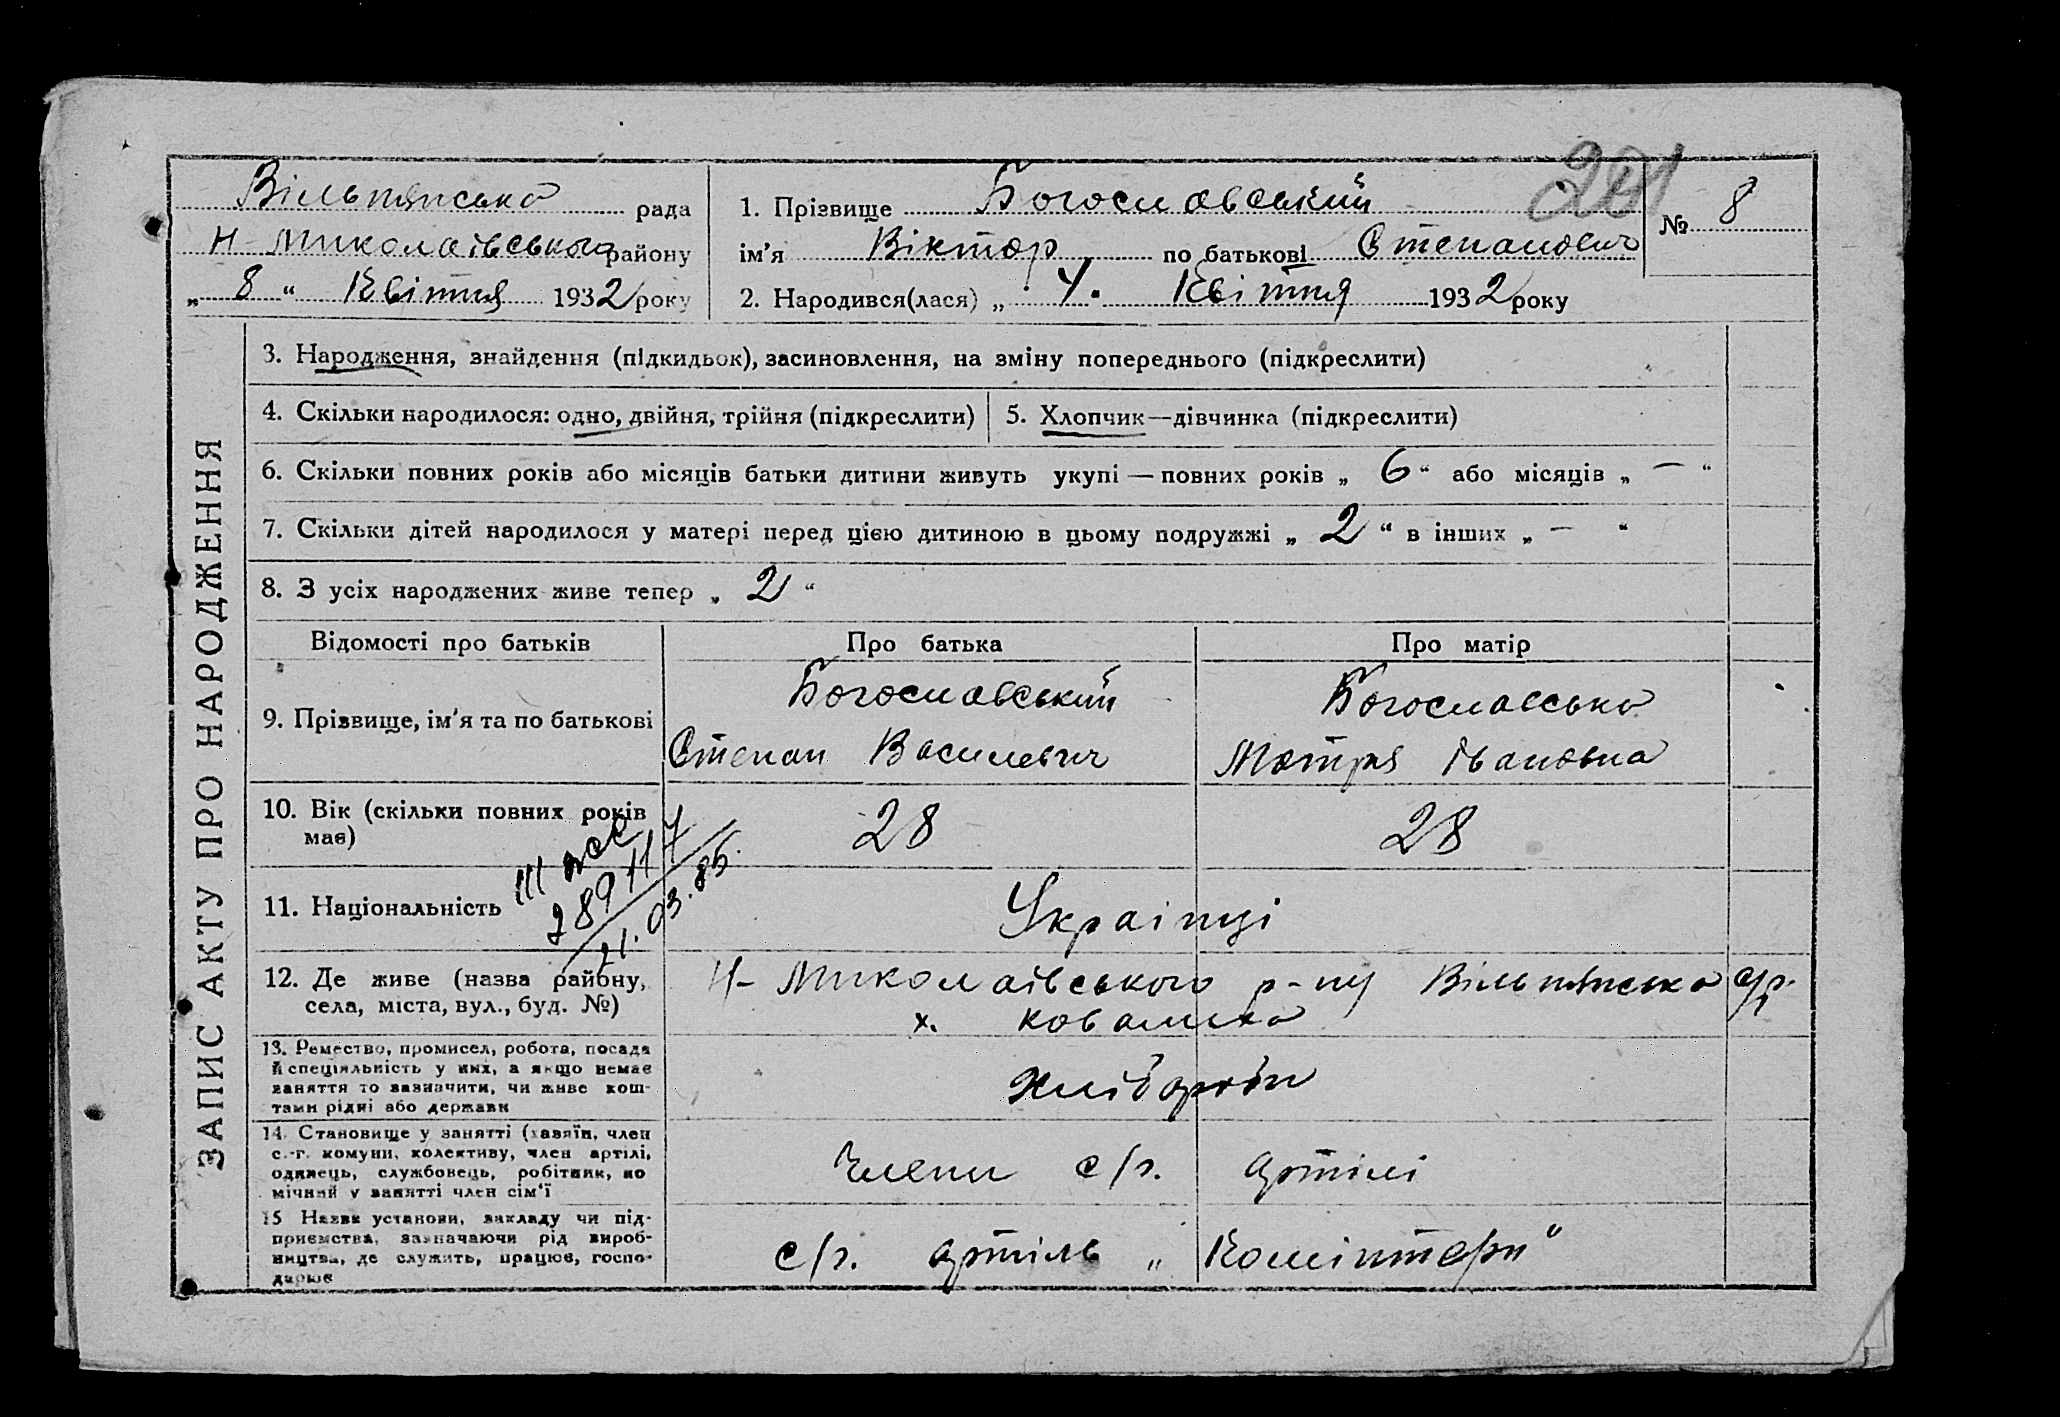 Вільнянська рада
Н-Миколаївського району
„ 8 “ Квітня 1932 року
1. Прізвище Богославський
ім'я Віктор по батькові Степанович
2. Народився(лася) „ 4. Квітня 1932 року
№ 8
ЗАПИС АКТУ ПРО НАРОДЖЕННЯ
3. Народження, знайдення (підкидьок), засиновлення, на зміну попереднього (підкреслити)
4. Скільки народилося: одно, двійня, трійня (підкреслити)
5. Хлопчик—дівчинка (підкреслити)
6. Скільки повних років або місяців батьки дитини живуть укупі — повних років „ 6 “ або місяців „ — “
7. Скільки дітей народилося у матері перед цією дитиною в цьому подружжі „ 2 “ в інших „ — “
8. З усіх народжених живе тепер „ 2 “
Відомості про батьків
Про батька
Про матір
9. Прізвище, ім'я та по батькові
Богославський
Степан Василевич
Богославська
Мотря Івановна
10. Вік (скільки повних років
має)
28
28
11. Національність
Українці
289117
21.03.85.
12. Де живе (назва району,
села, міста, вул., буд. №)
Н-Миколаївського р-ну Вільнянська с/р.
х.
13. Ремество, промисел, робота, посада
й спеціяльність у них, а якщо немає
заняття то зазначити, чи живе кош-
тами рідні або держави
Хлібороби
14. Становище у занятті (хазяїн, член
с.-г. комуни, колективу, член артілі,
одинець, службовець, робітник, по
мічний у занятті член сім'ї
Члени с/г. артілі
15 Назва установи, закладу чи під-
приємства, зазначаючи рід вироб-
ництва, де служить, працює, госпо-
дарює
с/г. артіль „Комінтерн“